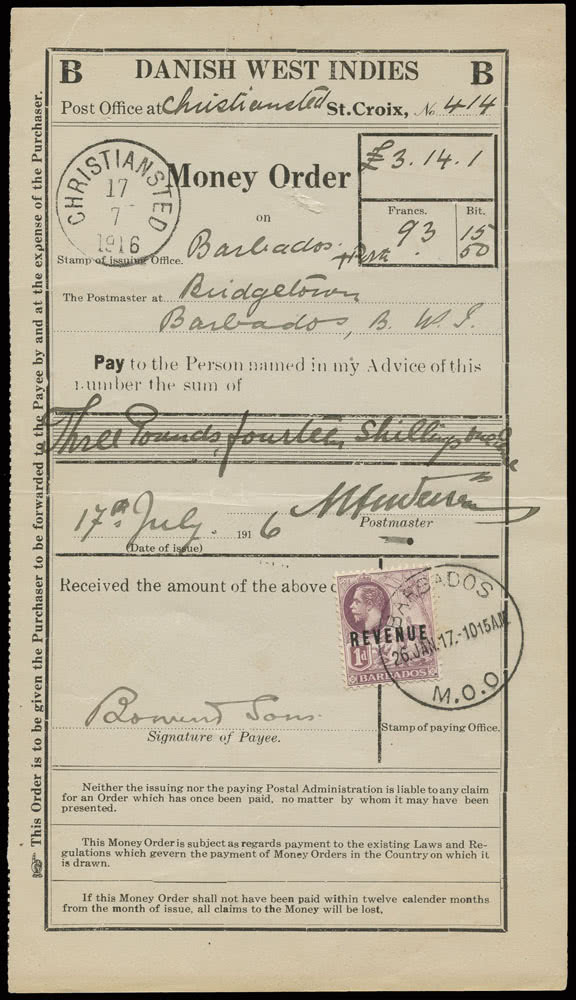 B DANISH WEST INDIES B
Post Office at Christiansted St. Croix, No. 414
CHRISTIANSTED
17
7
1916
Money Order
£3.14.1
on
Francs. Bit.
93 15
50
Stamp of issuing Office.
Barbados.
The Postmaster at Bridgetown
Barbados, B. W. I.
Pay to the Person named in my Advice of this
number the sum of
Three Pounds, fourteen Shillings
17th July. 1916
Postmaster
(Date of issue)
Received the amount of the above
REVENUE
1d
BARBADOS
BARBADOS
26.JAN.17.-1015AM
M.O.O.
Sons
Signature of Payee.
Stamp of paying Office.
Neither the issuing nor the paying Postal Administration is liable to any claim
for an Order which has once been paid, no matter by whom it may have been
presented.
This Money Order is subject as regards payment to the existing Laws and Re-
gulations which gevern the payment of Money Orders in the Country on which it
is drawn.
If this Money Order shall not have been paid within twelve calender months
from the month of issue, all claims to the Money will be lost.
This Order is to be given the Purchaser to be forwarded to the Payee by and at the expense of the Purchaser.